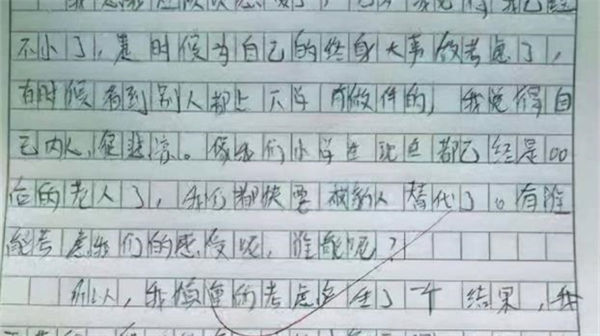 不小了，是时候为自己的终身大事做考虑了，
有时候看到别人都上下学有做伴的，我觉得自
己内人很悲凉。像我们小学生现在都已经是00
后的老人了，我们都快要被新人替代了。有谁
能考虑我们的感受呢，谁能呢？
别人，我慎重的考虑产生了一个结果，我